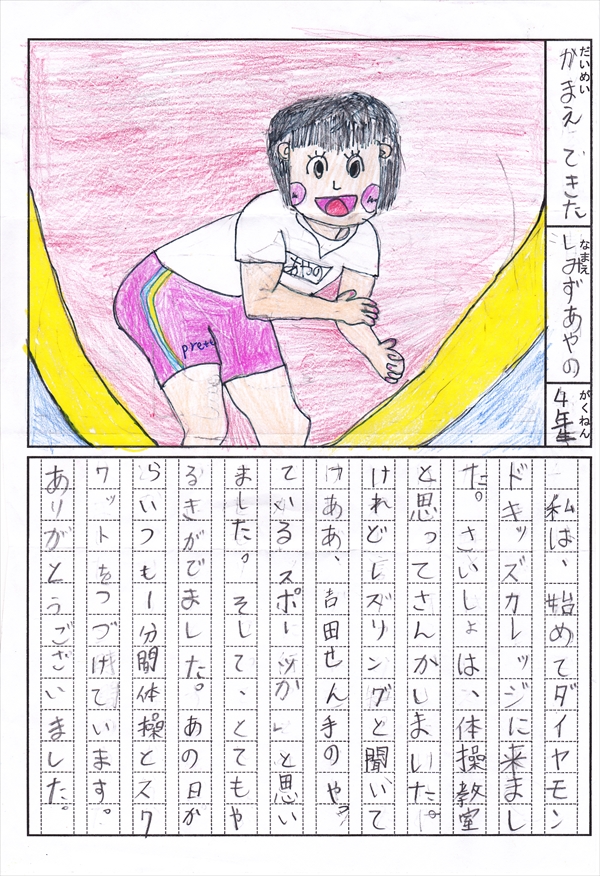 だいめい
かまえ できた
なまえ
しみずあやの
がくねん
4年生
あやの
私は、始めてダイヤモン
ドキッズカレッジに来まし
た。さいしょは、体操教室
と思ってさんかしまいた。
けれどレズリングと聞いて
けああ、吉田せん手のやっ
ているスポーツか、と思い
ました。そして、とてもや
るきがでました。あの日か
らいつも1分間体操とスク
ワットをつづけています。
ありがとうございました。